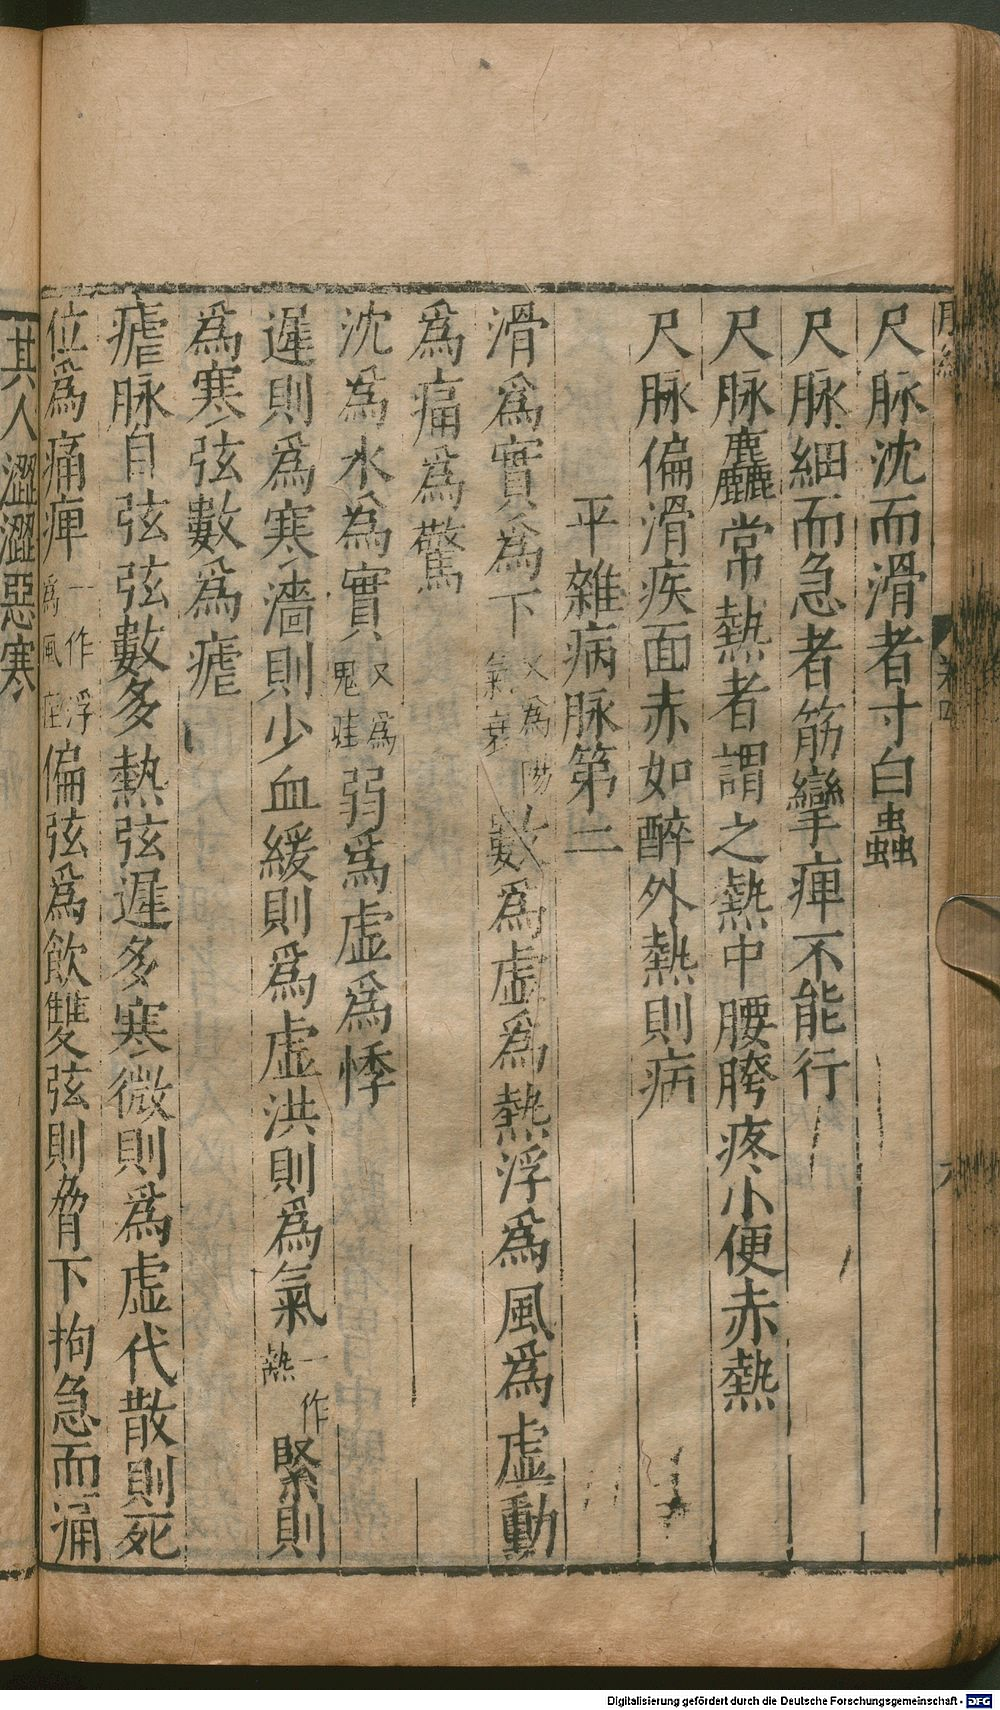 尺脉沈而滑者寸白蟲
尺脉細而急者筋攣痺不能行
尺脉麤常熱者謂之熱中腰胯疼小便赤熱
尺脉偏滑疾面赤如醉外熱則病
平雜病脉第二
滑爲實爲下又爲陽氣衰數爲虛爲熱浮爲風爲虛動
爲痛爲驚
沈爲水爲實又爲鬼疰弱爲虛爲悸
遲則爲寒濇則少血緩則爲虛洪則爲氣一作熱緊則
爲寒弦數爲瘧
瘧脉自弦弦數多熱弦遲多寒微則爲虛代散則死
位爲痛痺一作浮爲風疰偏弦爲飲雙弦則脅下拘急而痛
其人澀澀惡寒
Digitalisierung gefördert durch die Deutsche Forschungsgemeinschaft - DFG